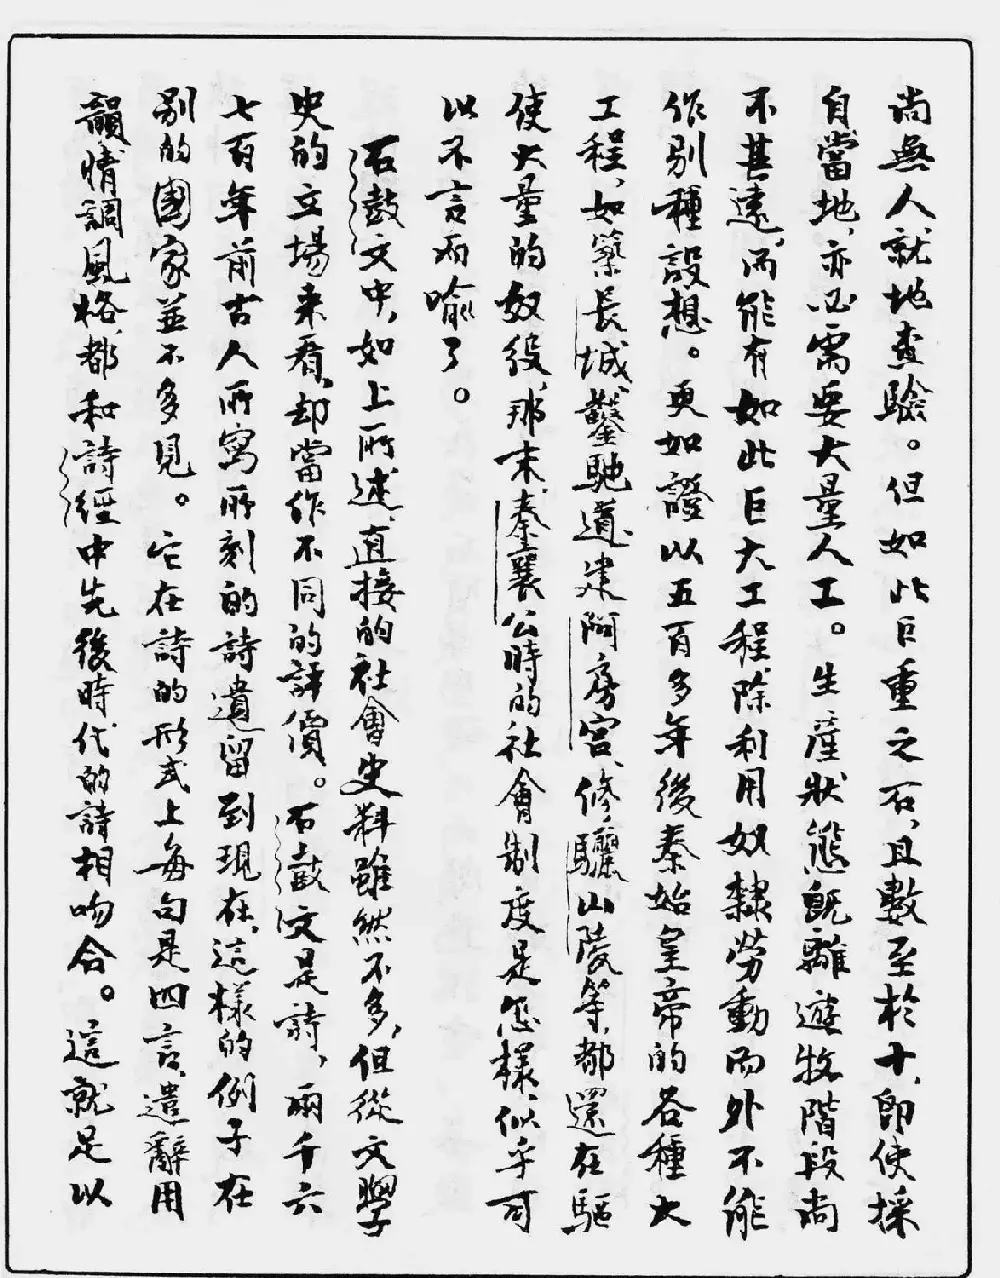 尚無人就地查驗。但如此巨重之石，且數至於十，即使採
自當地，亦必需要大量人工。生産狀態既離遊牧階段尚
不甚遠，而能有如此巨大工程，除利用奴隸勞動而外不能
作別種設想。更如證以五百多年後秦始皇帝的各種大
工程，如築長城、鑿馳道、建阿房宮、修驪山陵等，都還在驅
使大量的奴役，那末，秦襄公時的社會制度是怎樣，似乎可
以不言而喻了。
石鼓文中，如上所述，直接的社會史料雖然不多，但從文學
史的立場来看，却當作不同的評價。石鼓文是詩，兩千六
七百年前古人所寫所刻的詩遺留到現在，這樣的例子在
別的國家並不多見。它在詩的形式上每句是四言，遣辭用
韻，情調風格，都和詩經中先後時代的詩相吻合。這就是以